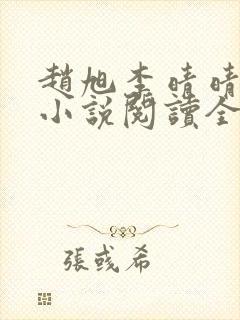 趙旭李晴晴
小說閱讀全
張彧希